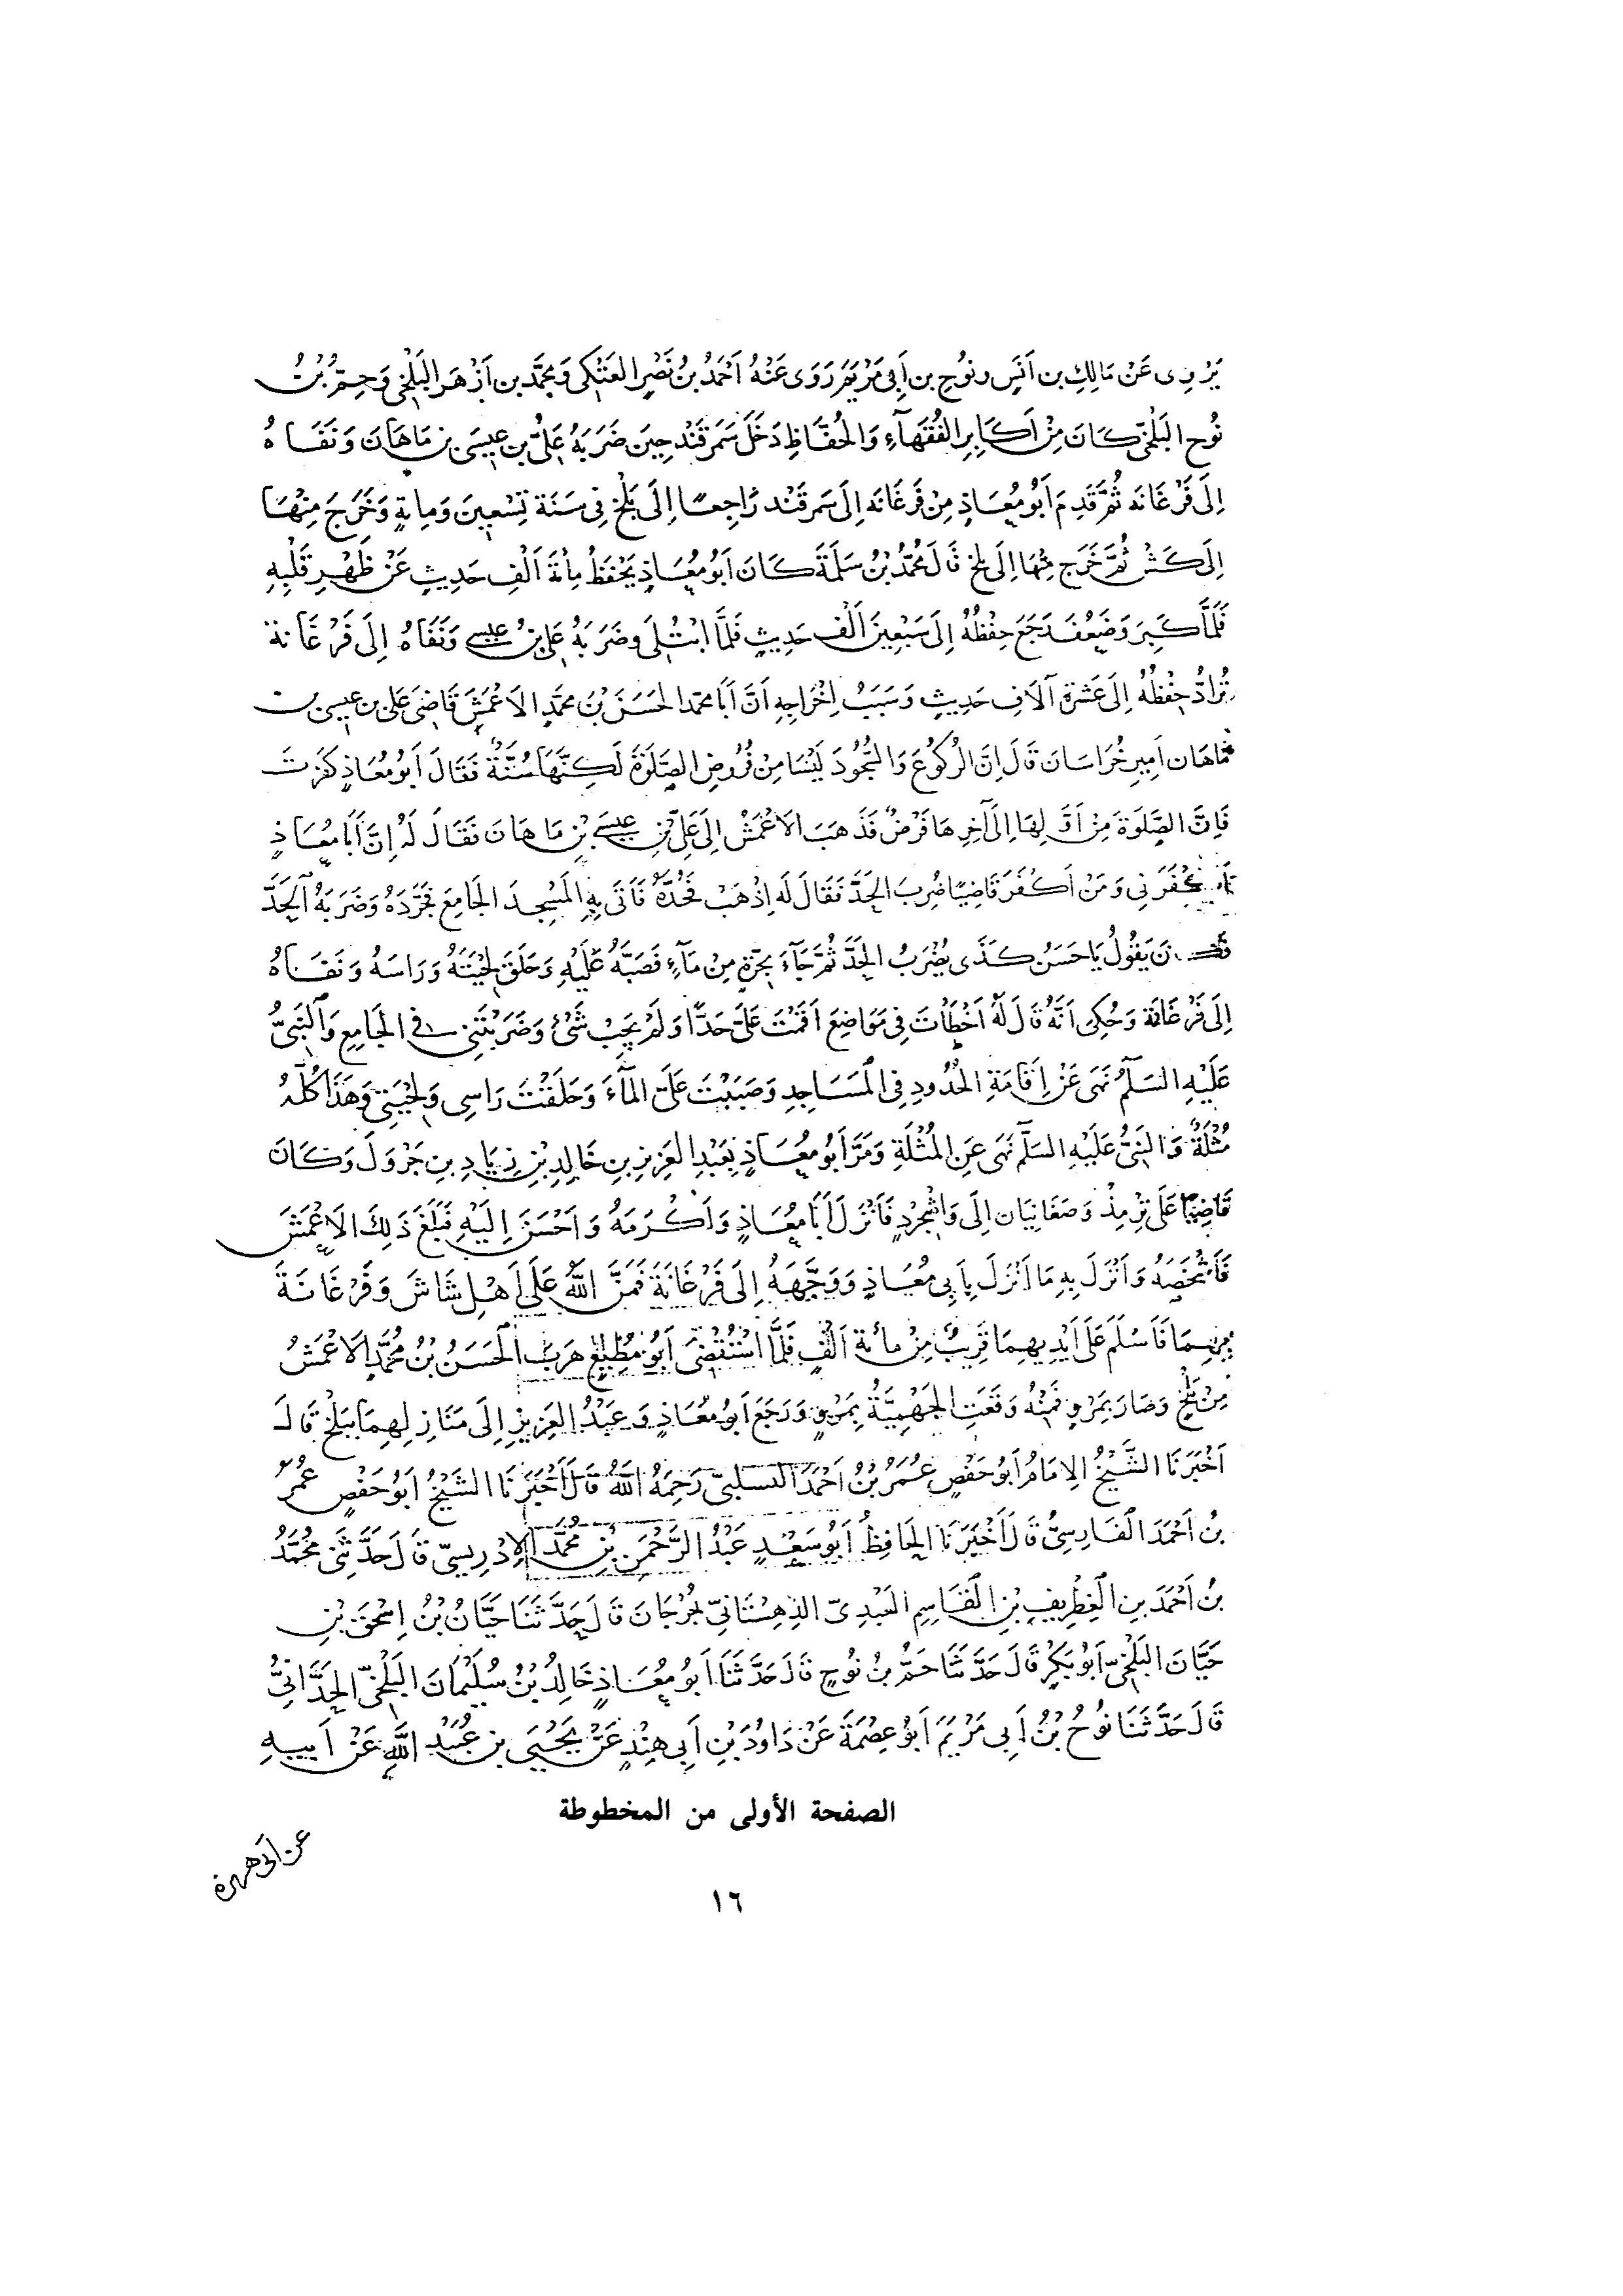 يَرْوِى عَنْ مَالِكِ بن اَنَسٍ ونُوحِ بن اَبِى مَرْيَمَ رَوَى عَنْهُ اَحْمَدُ بنُ نَصْرٍ العَتَكِى وَمُحَمَّد بن اَزْهَر البَلْخِى وَحَمُّ بْنُ
نُوح البَلْخِىّ كَانَ مِنْ اَكَابِرِ الفُقَهَآءِ وَالحُفَّاظِ دَخَلَ سَمَرقَنْد حِينَ ضَرَبَهُ عَلِىُّ بن عِيسَى بن مَاهَانَ وَنَفَاهُ
اِلَى فَرْغَانَه ثُمَّ قَدِمَ اَبُو مُعَاذٍ مِنْ فَرْغَانَه اِلَى سَمرقَنْد رَاجِعاً اِلَى بَلْخ فِى سَنَة تِسْعِينَ وَمِايةٍ وَخَرَجَ مِنْهَا
اِلَى كَشْ ثُمَّ خَرَج مِنْهَا اِلَى بلخ قَالَ مُحَمَّدُ بْنُ سَلَمَةَ كَانَ اَبُو مُعَاذٍ يَحْفَظُ مِأةَ اَلْفِ حَدِيثٍ عَنْ ظَهْرِ قَلْبِهِ
فَلَمَّا كَبِرَ وَضَعُفَ رَجَعَ حِفْظُهُ اِلَى سَبْعِينَ اَلْف حَدِيثٍ فَلَمَّا ابْتُلِىَ وضَرَبَهُ عَلِىّ بنُ عِيسَى وَنَفَاهُ اِلَى فَرْغَانة
تُرَادُّ حِفْظُهُ اِلَى عَشَرَةِ آلَافِ حَدِيثٍ وَسَبَبُ اِخْرَاجِهِ اَنَّ اَبَا محمّد الحَسَنَ بْنَ محَمَّدٍ الاَعْمَشَ قَاضِىَ عَلى بن عِيسى بن
مَاهَان اَمِيرِ خُرَاسَان قَالَ اِنَّ الرُكُوعَ وَالسُّجُودَ لَيْسَا مِنْ فُرُوضِ الصَّلَوةِ لَكِنَّهَا سُنَّةٌ فَقَالَ اَبُو مُعَاذٍ كَفَرْتَ
فَاِنَّ الصَّلَوةَ مِنْ اَوَّلِهَا اِلَى آخِرِهَا فَرْضٌ فَذَهَبَ الاَعْمَشُ اِلَى عَلِىّ بْنِ عِيسَى بْنِ مَاهَانَ فَقَالَ لَهُ اِنَّ اَبَا مُعَاذٍ
اَكْفَرَنِى وَمَنْ اَكْفَرَ قَاضِيًا ضُرِبَ الحَدَّ فَقَالَ لَه اِذْهَبْ فَحُدَّهُ فَاَتَى بِهِ المَسْجِدَ الجَامِعَ فَجَرَّدَهُ وَضَرَبَهُ الْحَدَّ
وَكَانَ يَقُولُ يَا حَسَنُ كَذَى يُضْرَبُ الحَدَّ ثُمَّ جَآءَ بِجَرَّةٍ مِنْ مَآءٍ فَصَبَّهُ عَلَيْهِ وَحَلَقَ لِحْيَتَهُ وَرَاسَهُ وَنَفَاهُ
اِلَى فَرْغَانَة وَحُكِىَ اَنَّهُ قَالَ لَهُ اَخْطَأْتَ فِى مَوَاضِعَ اَقَمْتَ عَلَىَّ حَدًّا وَلَمْ يَجِبْ شَىْءٌ وَضَرَبْتَنِى فِى الجَامِعِ وَالنَّبِىُّ
عَلَيْهِ السَلمُ نَهَى عَنْ اِقَامَةِ الحُدُودِ فِى المَسَاجِدِ وَصَبَبْتَ عَلَىَّ المَآءَ وَحَلَقْتَ رَاسِى وَلِحْيَتِى وَهَذَا كُلُّهُ
مُثْلَةٌ وَالنَبِىُّ عَلَيْهِ السَلمُ نَهَى عَنِ المُثْلَةِ وَمَرَّ اَبُو مُعَاذٍ بِعَبْدِ العَزِيزِ بنِ خَالِدِ بْنِ زِيَادِ بنِ جَرْوَلَ وَكَانَ
قَاضِيًا عَلَى تِرْمِذْ وَصَغَانِيَان اِلَى وَاشْجِرْدٍ فَاَنْزَلَ اَبَا مُعَاذٍ وَاَكْرَمَهُ وَاَحْسَنَ اِلَيْهِ فَبَلَغَ ذَلِكَ الاَعْمَشَ
فَاَشْخَصَهُ وَاَنْزَلَ بِهِ مَا اَنْزَلَ بِاَبِى مُعَاذٍ وَوَجَّهَهُ اِلَى فَرْغَانَةَ فَمَنَّ اللهُ عَلَى اَهْلِ شَاشَ وَفَرْغَانَةَ
بِهِمَا فَاَسْلَمَ عَلَى اَيْدِيهِمَا قَرِيبٌ مِنْ مائة اَلْفٍ فَلَمَّا اسْتُقْضِىَ اَبُو مُطِيْعٍ هَرَبَ الْحَسَنُ بْنُ مُحَمَّدٍ الاَعْمَشُ
مِنْ بَلْخٍ وَصَارَ بِمَرْوٍ فَمِنْهُ وَقَعَتِ الجَهْمِيَّةُ بِمَرْوٍ وَرَجَعَ اَبُو مُعَاذٍ وَعَبْدُ العَزِيزِ اِلَى مَنَازِلِهِمَا بِبَلْخ قَالَ
اَخْبَرَنَا الشَّيْخُ الاِمَامُ اَبُو حَفْصٍ عُمَرُ بْنُ اَحْمَدَ رَحِمَهُ اللهُ قَالَ اَخْبَرَنَا الشَيْخُ اَبُو حَفْصٍ عُمَرُ
بْنُ اَحْمَدَ الْفَارِسِىُّ قَالَ اَخْبَرَنَا الحَافِظُ اَبُو سَعِيْدٍ عَبْدُ الرَّحْمَنِ بْنِ مُحَمَّد الاِدْرِيسِىّ قَالَ حَدَّثَنِى مُحَمَّدُ
بْنُ اَحْمَدَ بنِ الْغِطْرِيفِ بْنِ الْقَاسِمِ العَبْدِىّ الدِهِسْتَانِىّ بِجُرْجَانَ قَالَ حَدَّثَنَا حَيَّانُ بْنُ اِسْحَقَ بْنِ
حَيَّانَ البَلْخِىّ اَبُو بَكْرٍ قَالَ حَدَّثَنَا حَمُّ بنُ نُوحٍ قَالَ حَدَّثَنَا اَبُو مُعَاذٍ خَالِدُ بْنُ سُلَيْمَانَ البَلْخِىّ الحَدَّانِىُّ
قَالَ حَدَّثَنَا نُوحُ بْنُ اَبِى مَرْيَمَ اَبُو عِصْمَةَ عَنْ دَاوُدَ بْنِ اَبِى هِنْدٍ عَنْ يَحْيَى بن عُبَيْدِ اللهِ عَنْ اَبِيهِ
الصفحة الأولى من المخطوطة
عن ابى هريرة
١٦